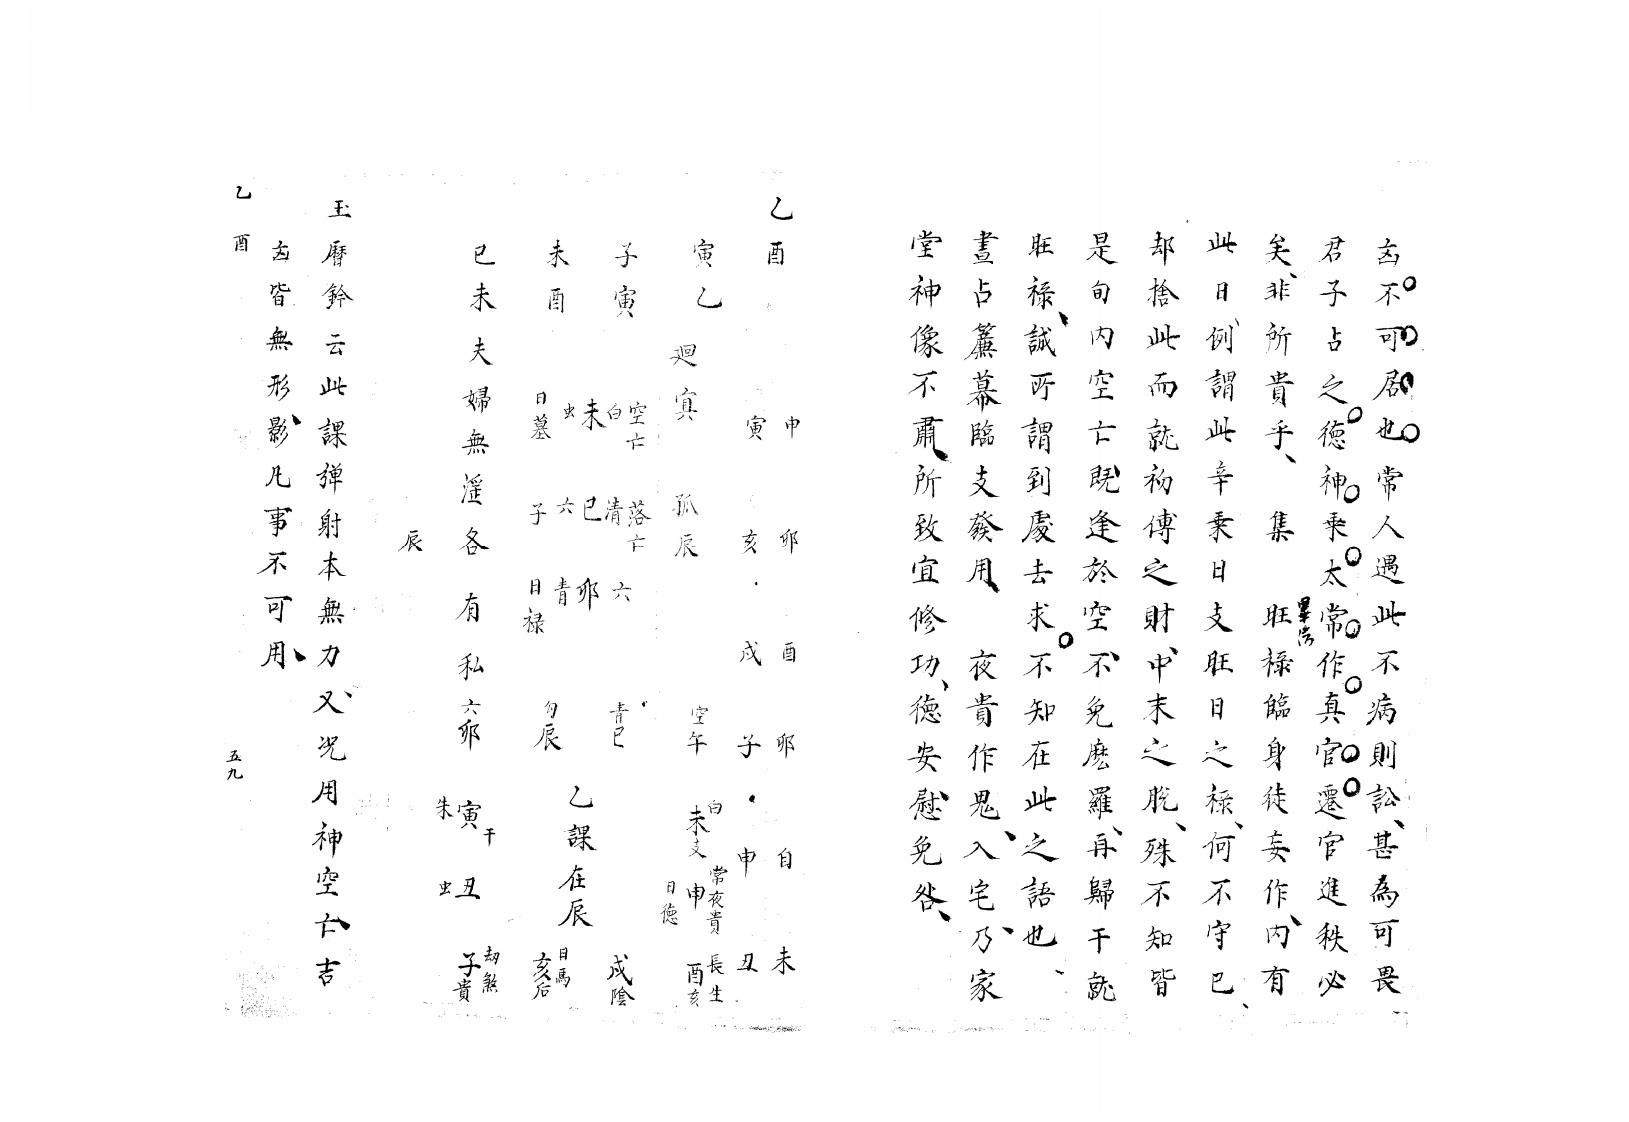 凶不可居也常人遇此不病則訟甚為可畏
君子占之德神乘太常作真官遷官進秩必
矣非所貴乎集 旺祿臨身徒妄作內有
畢法
此日例謂此辛乘日支旺日之祿何不守已
却捨此而就初傳之財中末之脫殊不知皆
是旬內空亡既逢於空不免麽羅再歸干就
旺祿誠所謂到處去求不知在此之語也
晝占簾幕臨支發用 夜貴作鬼入宅乃家
堂神像不肅所致宜修功德安慰免咎
乙酉
申 卯 酉 卯 自 未
寅 亥 戌 子 申 丑
寅乙 廻寅 孤辰 空午 白未支 常夜貴申日德 長生酉亥
子寅 空亡白未 落亡清巳 六卯 青巳 戌陰
未酉 虫日墓 六子 青日祿 勾辰 乙課在辰 日馬亥后
巳未 夫婦無淫各有私 六卯 寅干朱 丑虫 劫煞子貴
辰
玉曆鈐云此課彈射本無力又况用神空亡吉
凶皆無形影凡事不可用
乙酉
五九